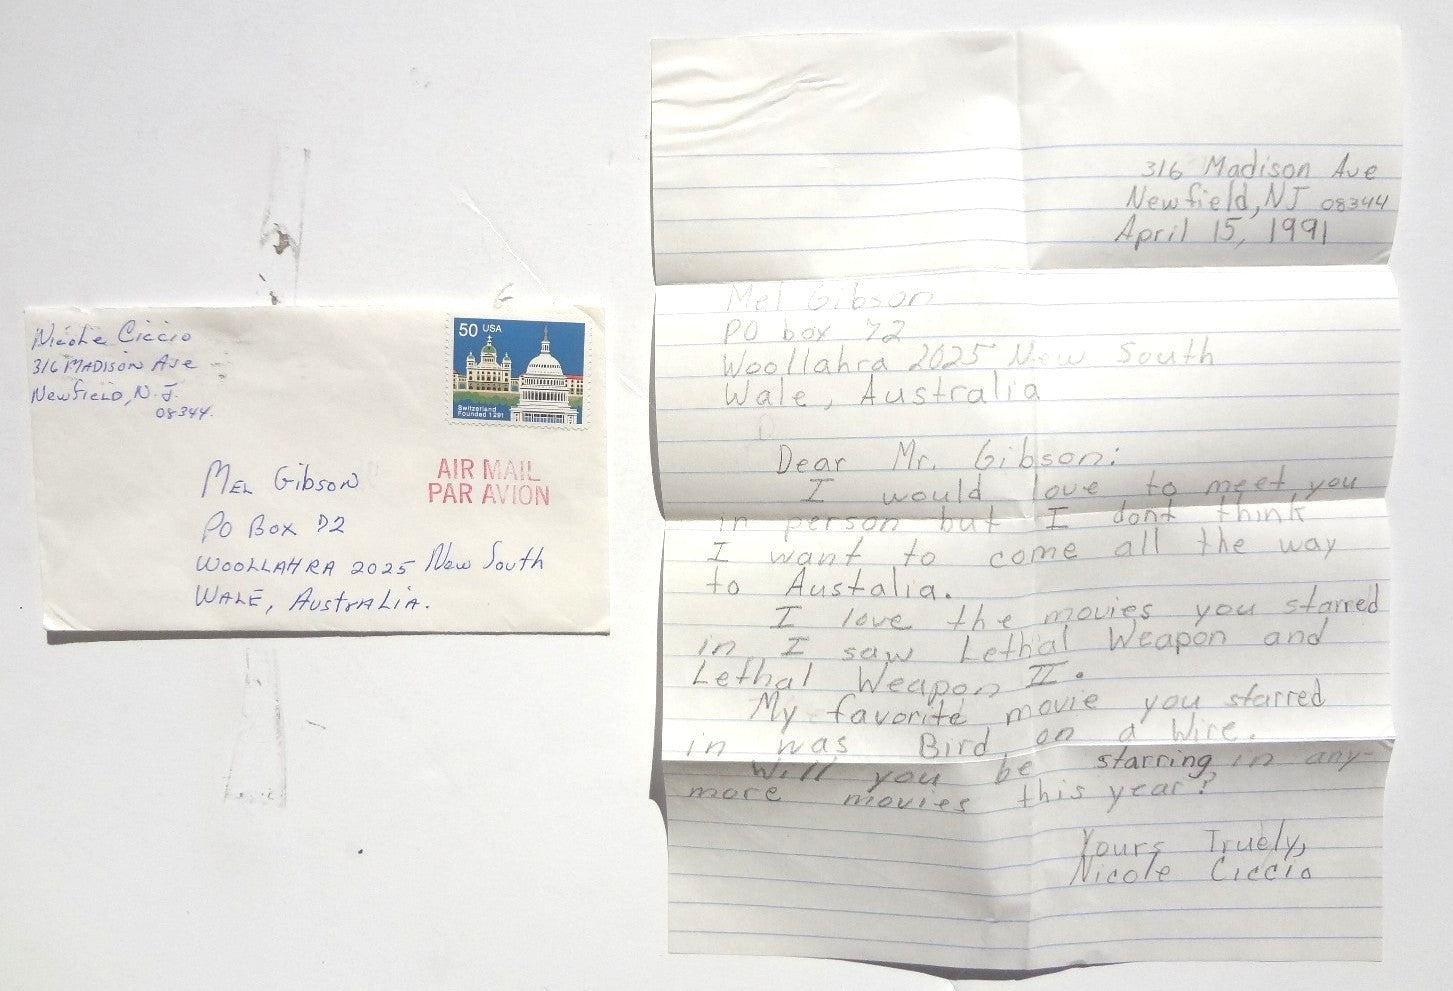 Nicole Ciccio
316 MADISON AVE
NEWFIELD, N.J.
08344.
50 USA
Switzerland
Founded 1291
AIR MAIL
PAR AVION
MEL GIBSON
PO BOX 72
WOOLLAHRA 2025 New South
WALE, AUSTRALIA.
316 Madison Ave
Newfield, NJ 08344
April 15, 1991
Mel Gibson
PO box 72
Woollahra 2025 New South
Wale, Australia
Dear Mr. Gibson:
I would love to meet you
in person but I dont think
I want to come all the way
to Austalia.
I love the movies you starred
in. I saw Lethal Weapon and
Lethal Weapon II.
My favorite movie you starred
in was Bird on a Wire.
Will you be starring in any-
more movies this year?
Yours Truely,
Nicole Ciccio